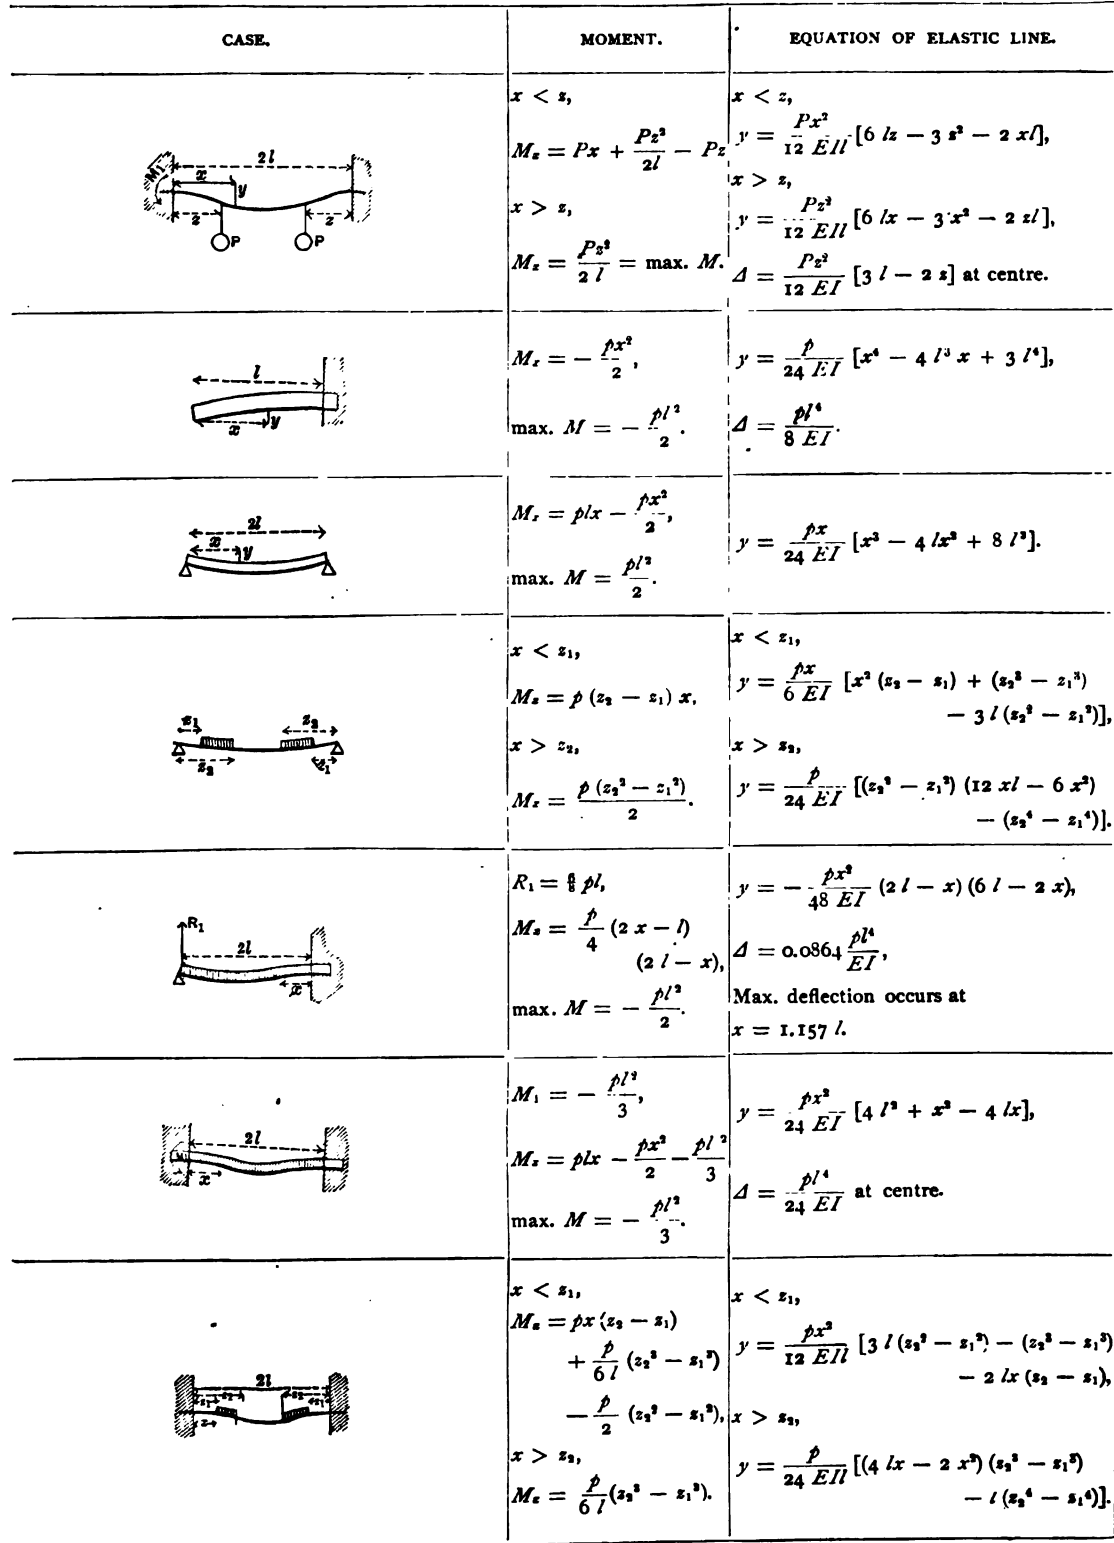 CASE. MOMENT. EQUATION OF ELASTIC LINE.
M₁ 2l x y z z P P
x < z,
Mₓ = Px + Pz²/2l − Pz
x > z,
Mₓ = Pz²/2 l = max. M.
x < z,
y = Px²/12 EIl [6 lz − 3 z² − 2 xl],
x > z,
y = Pz²/12 EIl [6 lx − 3 x² − 2 zl],
Δ = Pz²/12 EI [3 l − 2 z] at centre.
l x y
Mₓ = − px²/2,
max. M = − pl²/2.
y = p/24 EI [x⁴ − 4 l³ x + 3 l⁴],
Δ = pl⁴/8 EI.
2l x y
Mₓ = plx − px²/2,
max. M = pl²/2.
y = px/24 EI [x³ − 4 lx² + 8 l³].
z₁ z₂ z₂ z₁
x < z₁,
Mₓ = p (z₂ − z₁) x,
x > z₂,
Mₓ = p (z₂² − z₁²)/2.
x < z₁,
y = px/6 EI [x² (z₂ − z₁) + (z₂³ − z₁³)
− 3 l (z₂² − z₁²)],
x > z₂,
y = p/24 EI [(z₂² − z₁²) (12 xl − 6 x²)
− (z₂⁴ − z₁⁴)].
R₁ 2l x
R₁ = 6/8 pl,
Mₓ = p/4 (2 x − l)
(2 l − x),
max. M = − pl²/2.
y = − px²/48 EI (2 l − x) (6 l − 2 x),
Δ = 0.0864 pl⁴/EI,
Max. deflection occurs at
x = 1.157 l.
2l x
M₁ = − pl²/3,
Mₓ = plx − px²/2 − pl²/3
max. M = − pl²/3.
y = px²/24 EI [4 l² + x² − 4 lx],
Δ = pl⁴/24 EI at centre.
2l z₁ z₂ z₂ z₁ x
x < z₁,
Mₓ = px (z₂ − z₁)
+ p/6 l (z₂³ − z₁³)
− p/2 (z₂² − z₁²),
x > z₂,
Mₓ = p/6 l (z₂³ − z₁³).
x < z₁,
y = px²/12 EIl [3 l (z₂² − z₁²) − (z₂³ − z₁³)
− 2 lx (z₂ − z₁),
x > z₂,
y = p/24 EIl [(4 lx − 2 x²) (z₂³ − z₁³)
− l (z₂⁴ − z₁⁴)].